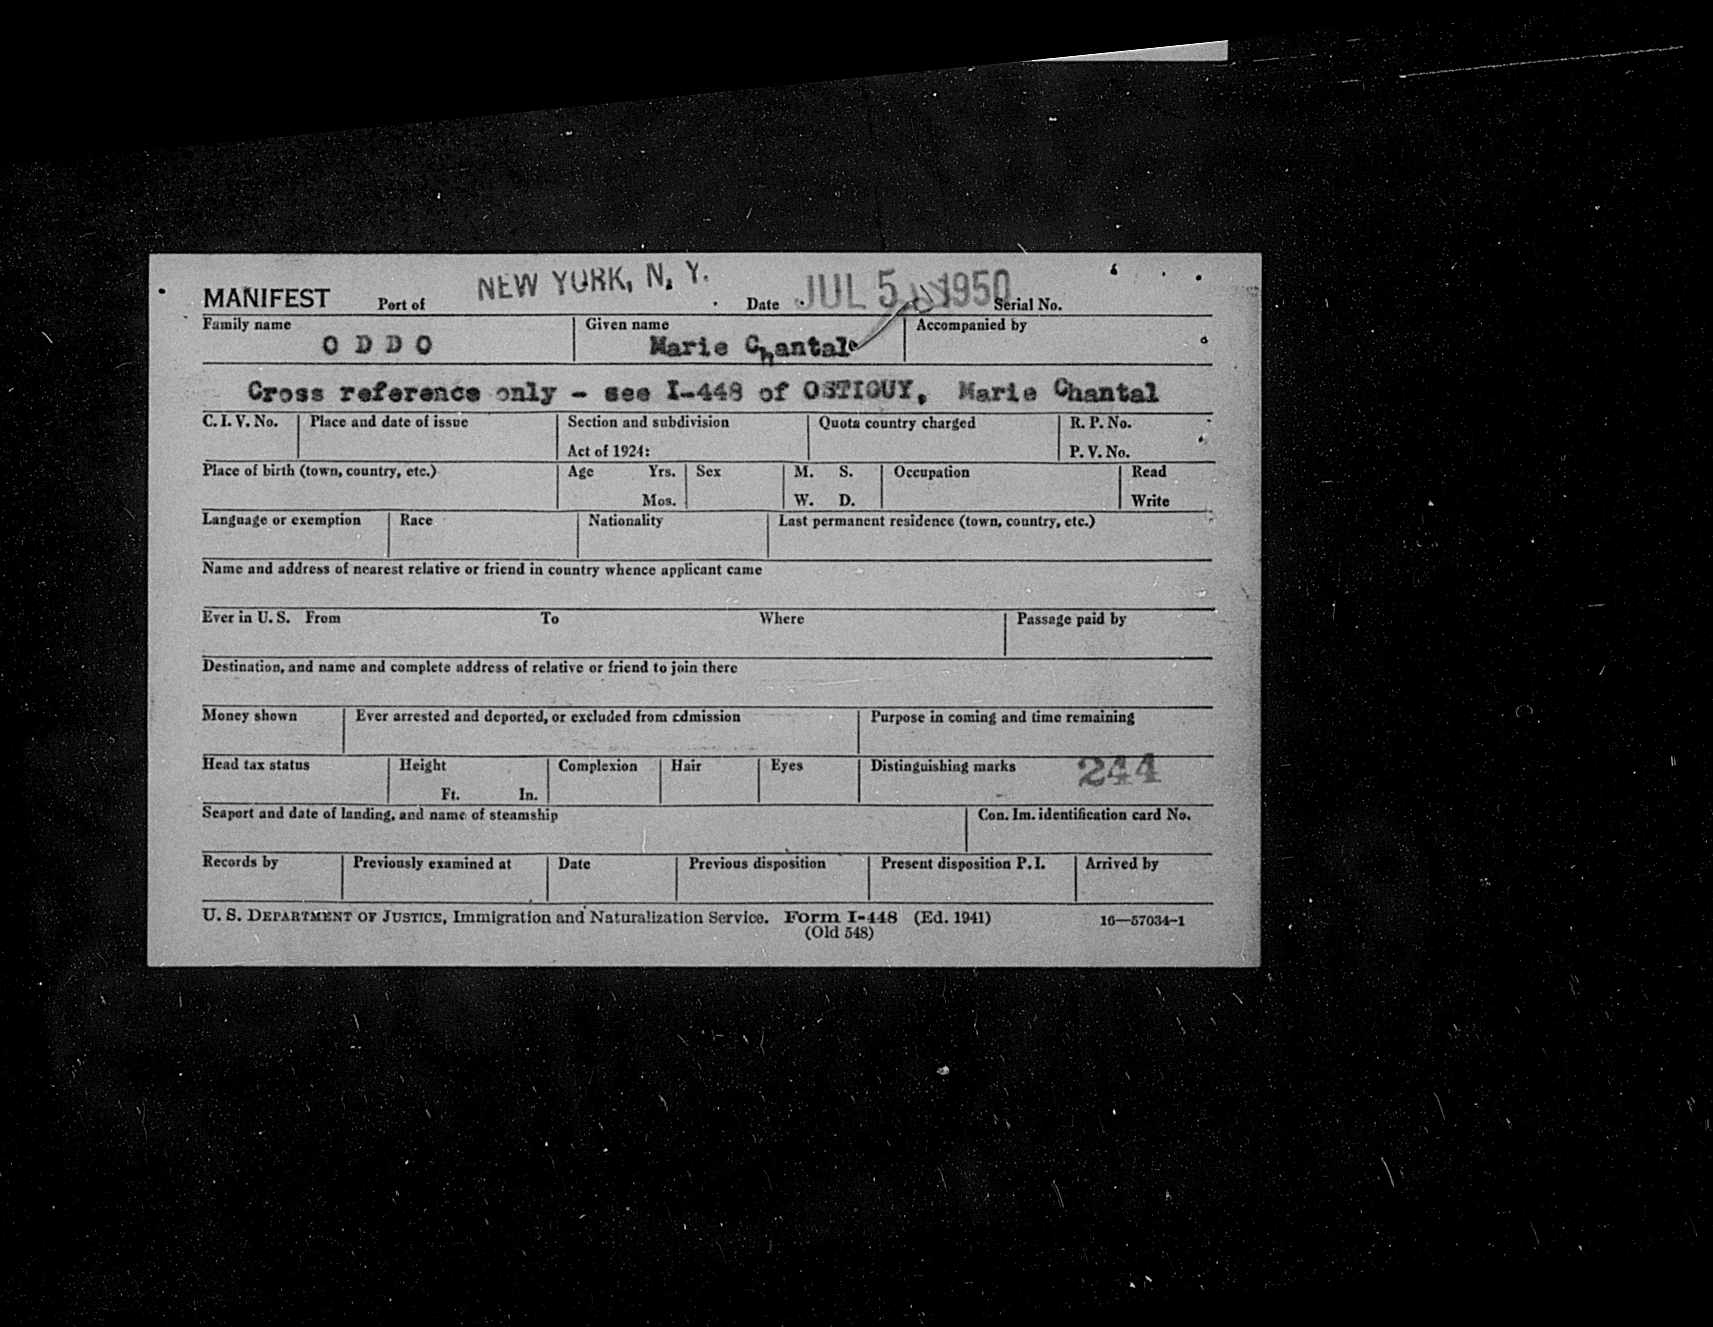 MANIFEST Port of NEW YORK, N. Y. Date JUL 5 1950 Serial No.
Family name Given name Accompanied by
O D D O Marie Chantal
Cross reference only - see I-448 of OSTIGUY, Marie Chantal
C. I. V. No. Place and date of issue Section and subdivision Quota country charged R. P. No.
Act of 1924: P. V. No.
Place of birth (town, country, etc.) Age Yrs. Sex M. S. Occupation Read
Mos. W. D. Write
Language or exemption Race Nationality Last permanent residence (town, country, etc.)
Name and address of nearest relative or friend in country whence applicant came
Ever in U. S. From To Where Passage paid by
Destination, and name and complete address of relative or friend to join there
Money shown Ever arrested and deported, or excluded from admission Purpose in coming and time remaining
Head tax status Height Complexion Hair Eyes Distinguishing marks 244
Ft. In.
Seaport and date of landing, and name of steamship Con. Im. identification card No.
Records by Previously examined at Date Previous disposition Present disposition P. I. Arrived by
U. S. DEPARTMENT OF JUSTICE, Immigration and Naturalization Service. Form I-448 (Ed. 1941) 16—57034-1
(Old 548)